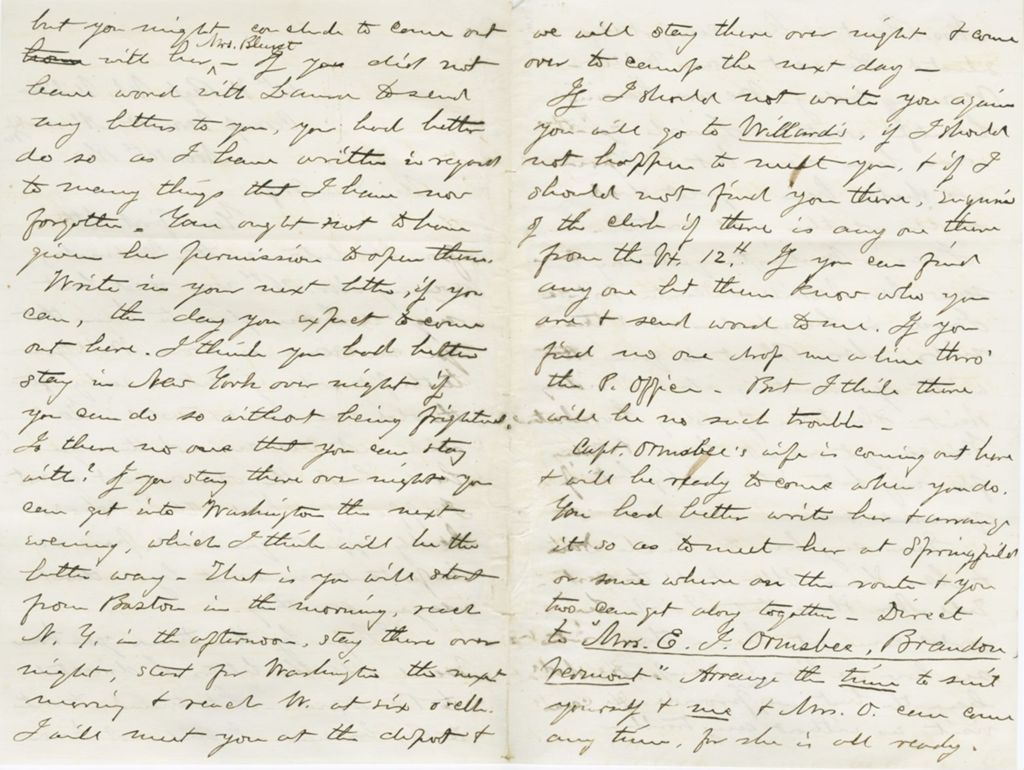 but you might conclude to come out
with her, – If you did not
Mrs. Blunt
leave word with to send
my letters to you, you had better
do so as I have written in regard
to many things that I have now
forgotten. You ought not to have
given her permission to open them.
Write in your next letter, if you
can, the day you expect to come
out here. I think you had better
stay in New York over night if
you can do so without being frightened.
Is there no one that you can stay
with? If you stay there over night you
can get into Washington the next
evening, which I think will be the
better way – That is you will start
from Boston in the morning, reach
N. Y. in the afternoon, stay there over
night, start for Washington the next
morning & reach W. at six o'clk.
I will meet you at the depot &
we will stay there over night & come
over to camp the next day –
If I should not write you again
you will go to Willard's, if I should
not happen to meet you, & if I
should not find you there, inquire
of the clerk if there is any one there
from the Vt. 12th. If you can find
any one let them know who you
are & send word to me. If you
find no one drop me a line thro'
the P. Office – But I think there
will be no such trouble –
Capt. Ormsbee's wife is coming out here
& will be ready to come when you do.
You had better write her & arrange
it so as to meet her at Springfield
or some where on the route & you
two can get along together – Direct
to "Mrs. E. J. Ormsbee, Brandon,
Vermont." Arrange the time to suit
yourself & me & Mrs. O. can come
any time, for she is all ready.